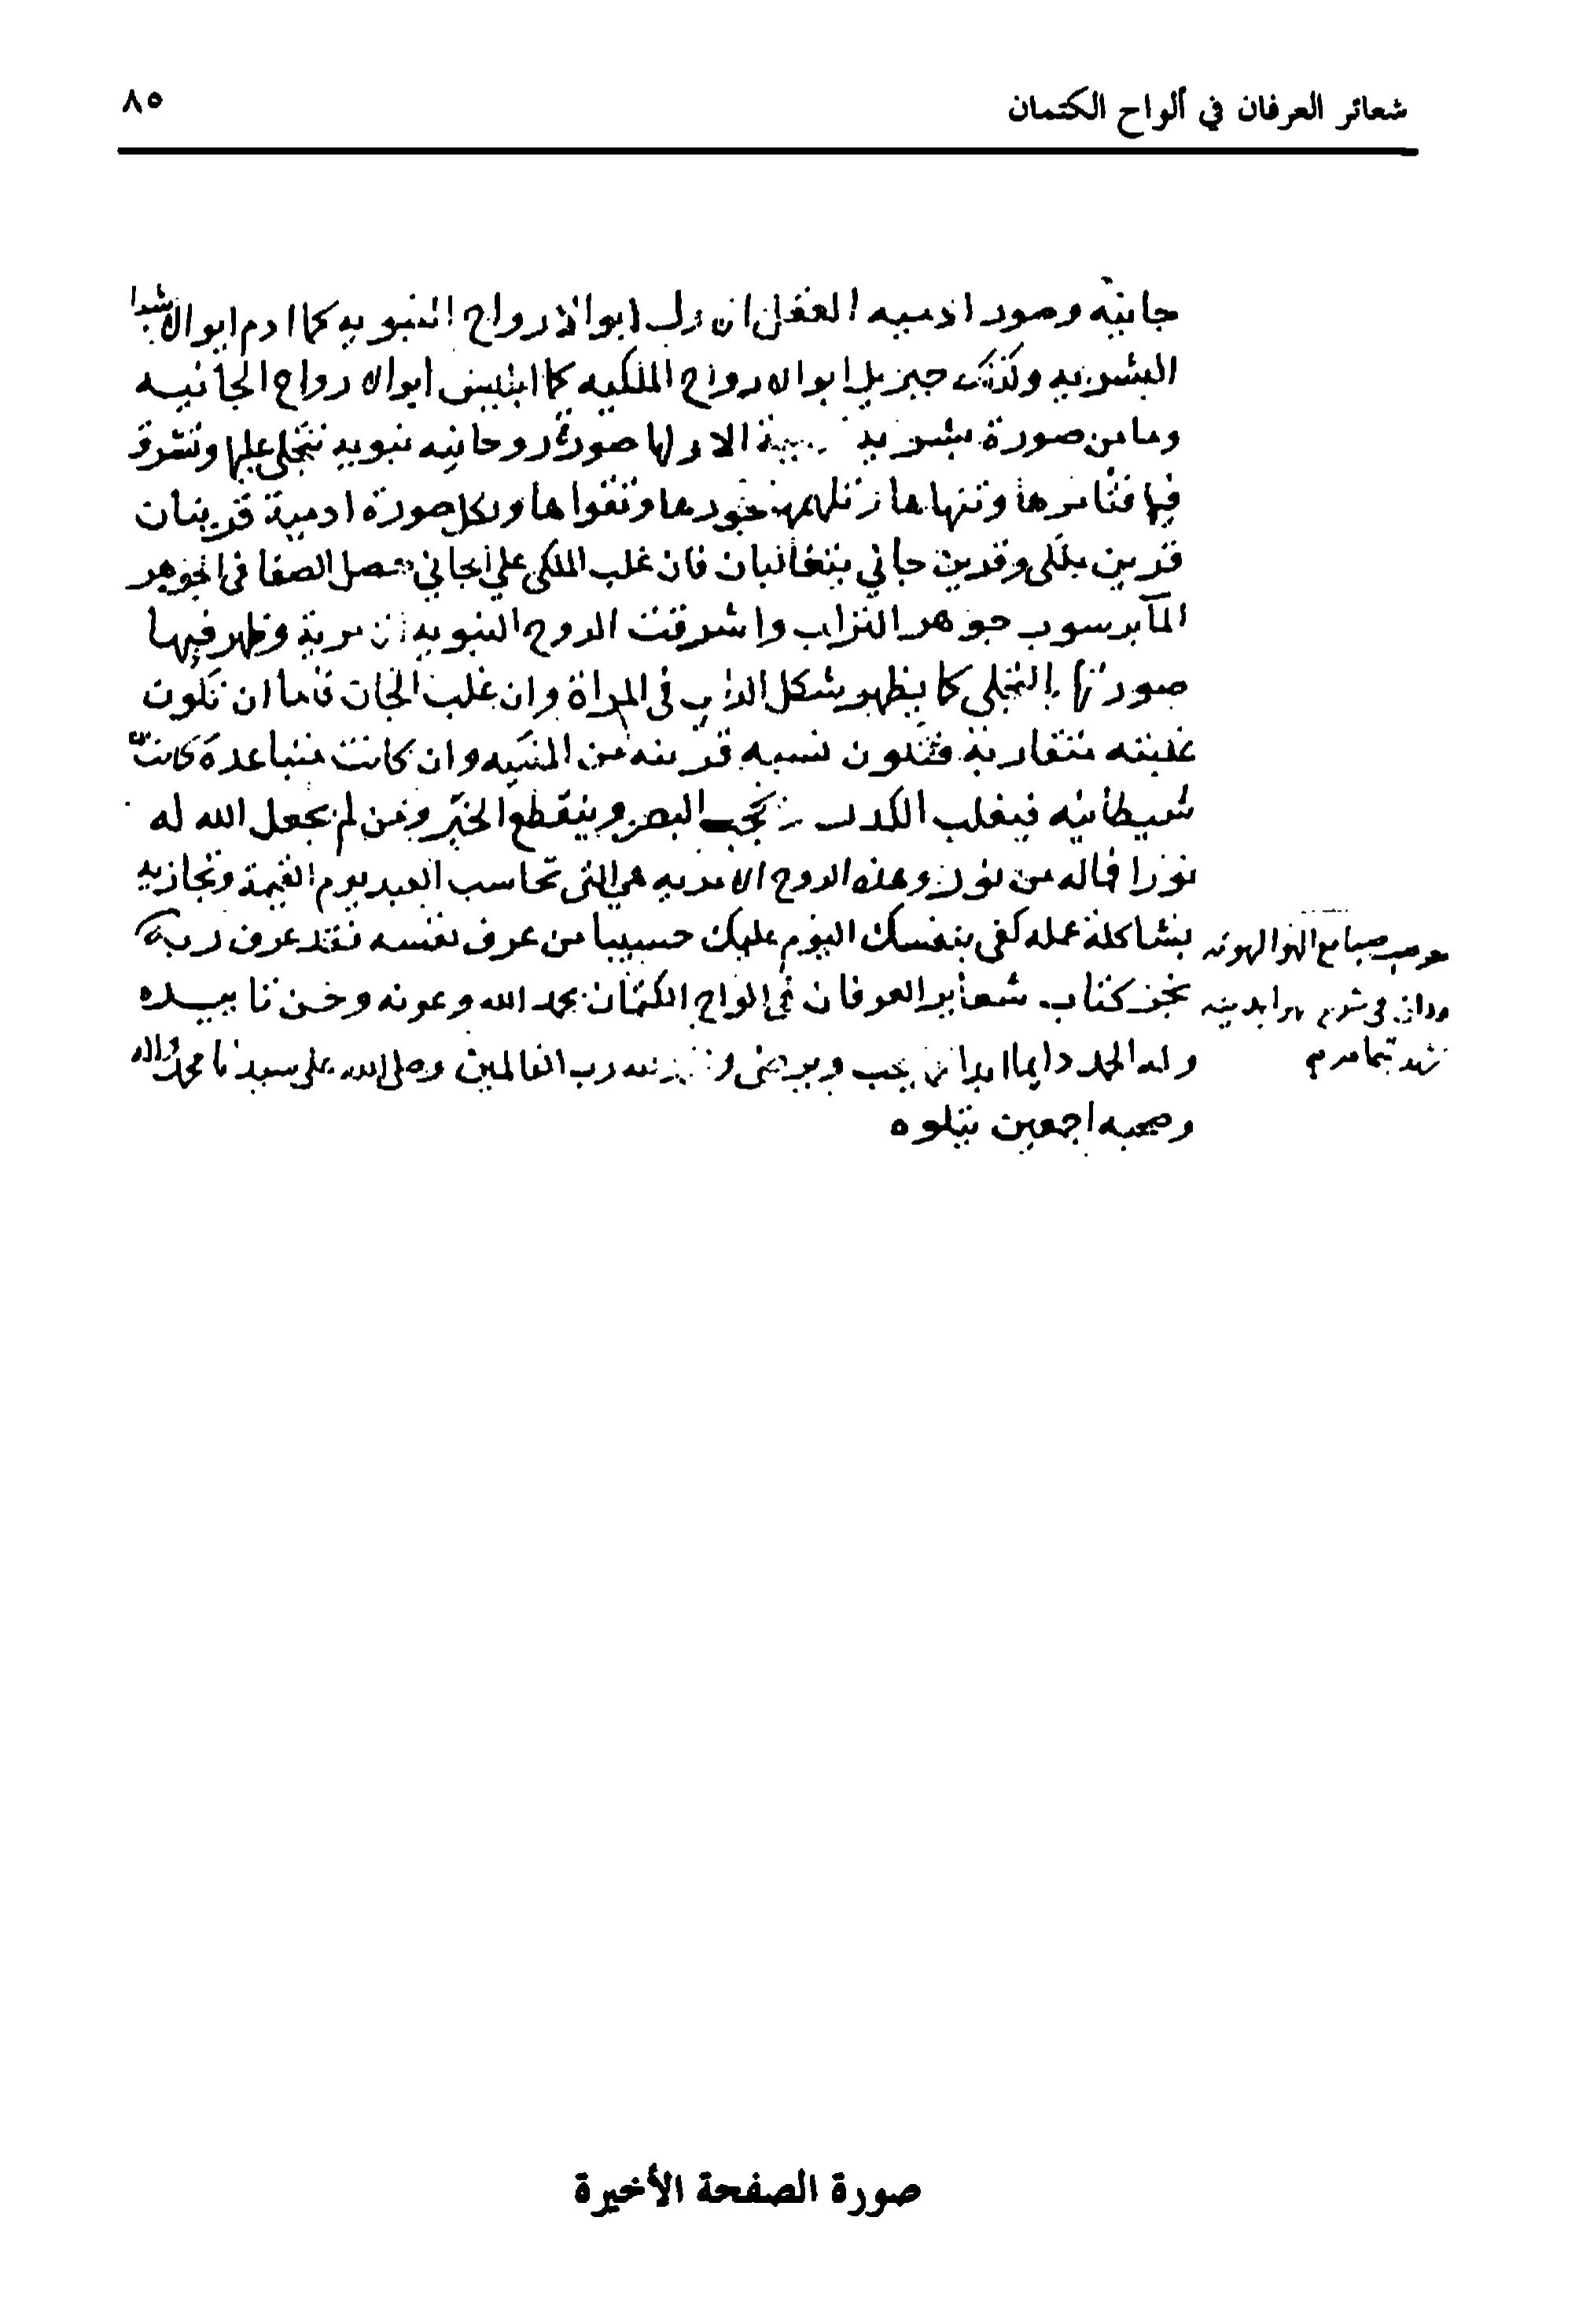 شعائر العرفان في ألواح الكتمان
٨٥
جانيه وصور ادميه العقل ابو الارواح النبويه كما ادم ابو الاشباح
البشريه وكذلك جبريل ابو الارواح الملكيه كما ابليس ابو الارواح الجانيه
وما من صورة بشريه الا ولها صورة روحانيه نبويه تتجلى عليها وتشرق
فيها فتامرها وتنهاها وتلهمها فجورها وتقواها ولكل صورة ادمية قرينان
قرين ملكي وقرين جاني يتغالبان فان غلب الملكى على الجاني حصل الصفا في الجوهر
المآ برسوب جوهر التراب واشرقت الروح النبويه وظهر فيها
صورتها بالتجلي كما يظهر شكل في المراة وان غلب الجان فاما ان تكون
غلبته متقاربة فتكون نسبه قرينه من وان كانت متباعدة كانت
شيطانيه فيغلب الكدر البصر وينقطع الخبر ومن لم يجعل الله له
نورا فماله من نور وهذه الروح الامريه هي التى تحاسب العبد يوم القيمة وتجازيه
بشاكلة عمله كفى بنفسك اليوم عليك حسيبا من عرف نفسه فقد عرف ربه
نجز كتاب شعاير العرفان في الواح الكتمان بحمد الله وعونه وحسن تاييده
وله الحمد دايما ابدا يحب ويرضى لله رب العالمين وصلى الله على سيدنا محمد واله
وصحبه اجمعين يتلوه
صورة الصفحة الأخيرة